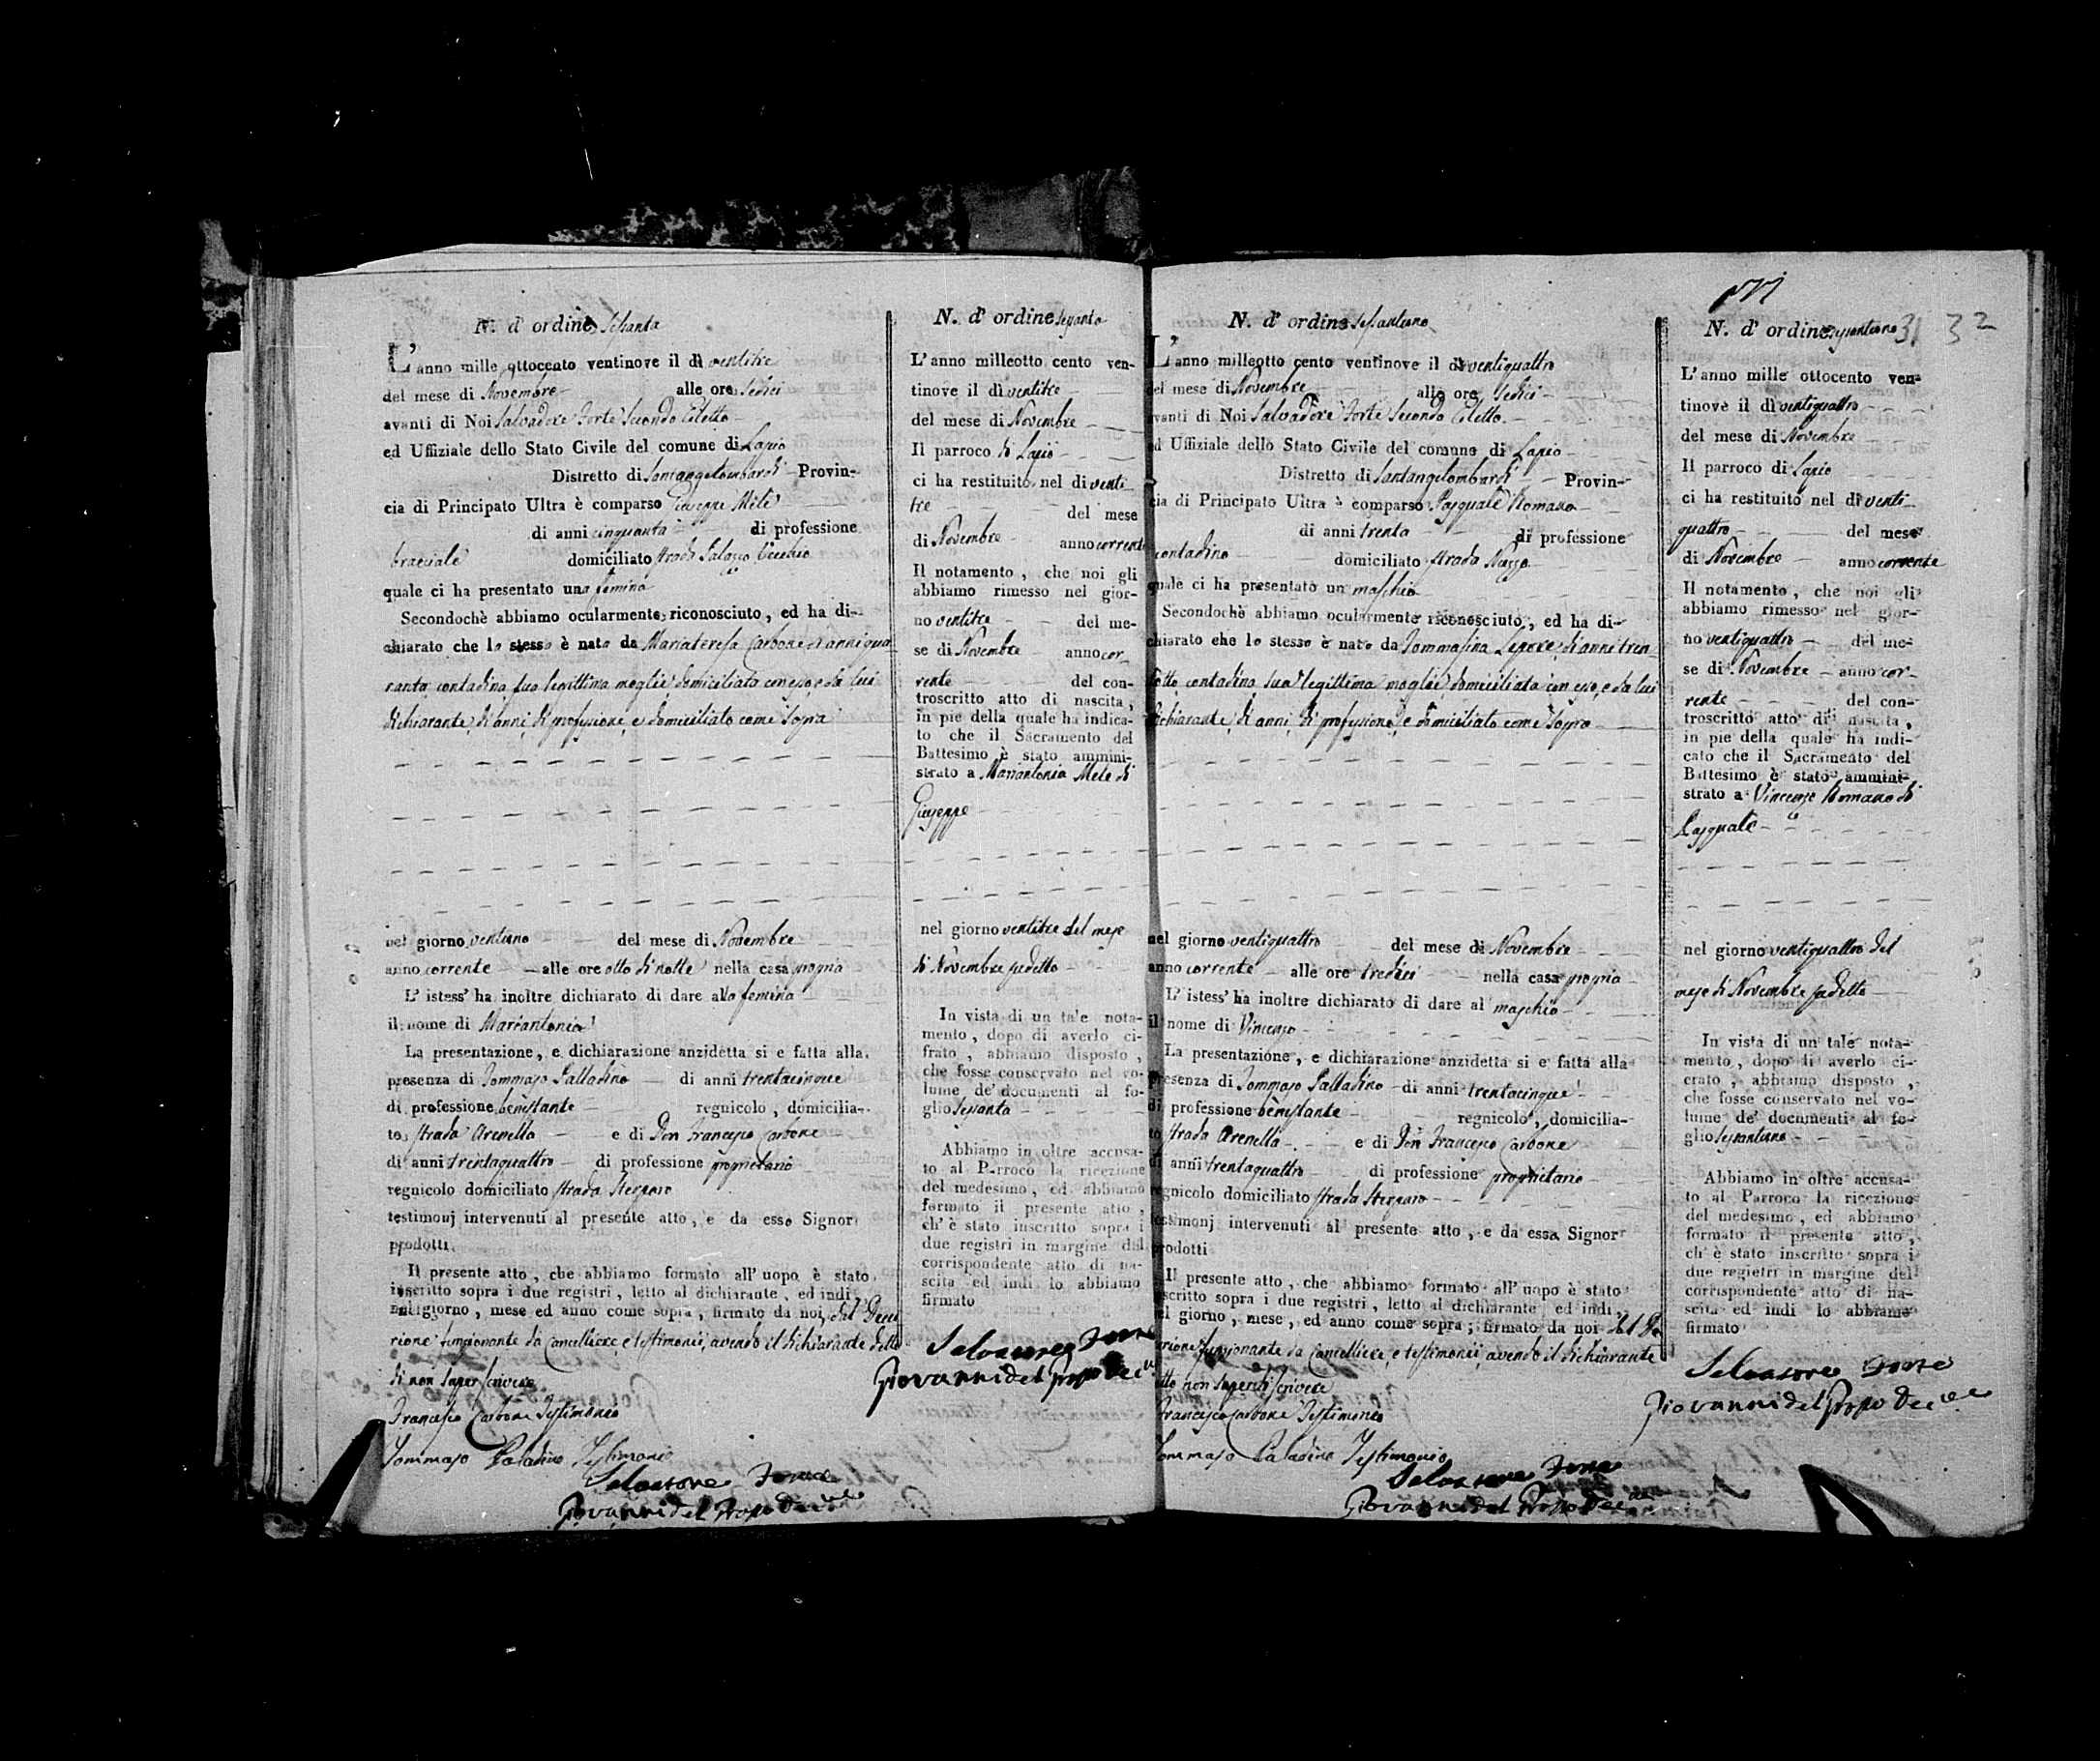 N. d' ordine Sessanta
L' anno mille ottocento ventinove il dì ventitre
del mese di Novembre alle ore Sedici
avanti di Noi Salvadore Forte Secondo Eletto
ed Uffiziale dello Stato Civile del comune di Lapio
Distretto di Santangelombardi Provin-
cia di Principato Ultra è comparso Giuseppe Mele
di anni cinquanta di professione
bracciale domiciliato strada Palazzo Vecchio
quale ci ha presentato una femina
Secondochè abbiamo ocularmente riconosciuto, ed ha di-
chiarato che la stessa è nata da Mariateresa Carbone d'anni qua
ranta contadina sua legittima moglie domiciliata con esso, e da lui
dichiarante, di anni, di professione, e domiciliato come sopra
nel giorno ventuno del mese di Novembre
anno corrente alle ore otto di notte nella casa propria
L' istess' ha inoltre dichiarato di dare alla femina
il nome di Mariantonia
La presentazione, e dichiarazione anzidetta si e fatta alla
presenza di Tommaso Palladino di anni trentacinque
di professione benestante regnicolo, domicilia-
to strada Arenella e di Don Francesco Carbone
di anni trentaquattro di professione proprietario
regnicolo domiciliato strada Sterparo
testimonj intervenuti al presente atto, e da esso Signor
prodotti.
Il presente atto, che abbiamo formato all' uopo è stato
inscritto sopra i due registri, letto al dichiarante, ed indi
nel giorno, mese ed anno come sopra, firmato da noi, dal Decu
rione funzionante da Cancelliere e testimonii, avendo il dichiarante detto
di non saper scrivere
Francesco Carbone Testimonio
Tommaso Paladino Testimonio
Salvatore Forte
Giovanni del Propo
N. d' ordine Sessanta
L' anno milleotto cento ven-
tinove il dì ventitre
del mese di Novembre
Il parroco di Lapio
ci ha restituito nel dì venti
tre del mese
di Novembre anno corrente
Il notamento, che noi gli
abbiamo rimesso nel gior-
no ventitre del me-
se di Novembre anno cor-
rente del con-
troscritto atto di nascita,
in pie della quale ha indica-
to che il Sacramento del
Battesimo è stato ammini-
strato a Mariantonia Mele di
Giuseppe
nel giorno ventitre del mese
di Novembre sudetto
In vista di un tale nota-
mento, dopo di averlo ci-
frato, abbiamo disposto,
che fosse conservato nel vo-
lume de' documenti al fo-
glio Sessanta
Abbiamo in oltre accusa-
to al Parroco la ricezione
del medesimo, ed abbiamo
formato il presente atto,
ch' è stato inscritto sopra i
due registri in margine del
corrispondente atto di na-
scita ed indi lo abbiamo
firmato
Salvatore Forte
Giovanni del Propo
N. d' ordine Sessantuno
L' anno milleotto cento ventinove il dì ventiquattro
del mese di Novembre alle ore Sedici
avanti di Noi Salvadore Forte Secondo Eletto
ed Uffiziale dello Stato Civile del comune di Lapio
Distretto di Santangelombardi Provin-
cia di Principato Ultra è comparso Pasquale Romano
di anni trenta di professione
contadino domiciliato strada
quale ci ha presentato un maschio
Secondochè abbiamo ocularmente riconosciuto, ed ha di-
chiarato che lo stesso è nato da Tommasina Lepore, di anni tren
totto contadina sua legittima moglie domiciliata con esso, e da lui
dichiarante, di anni, di professione, e domiciliato come sopra
nel giorno ventiquattro del mese di Novembre
anno corrente alle ore tredici nella casa propria
L' istess' ha inoltre dichiarato di dare al maschio
il nome di Vincenzo
La presentazione, e dichiarazione anzidetta si e fatta alla
presenza di Tommaso Palladino di anni trentacinque
di professione benestante regnicolo, domicilia-
to strada Arenella e di Don Francesco Carbone
di anni trentaquattro di professione proprietario
regnicolo domiciliato strada Sterparo
testimonj intervenuti al presente atto, e da esso Signor
prodotti
Il presente atto, che abbiamo formato all' uopo è stato
inscritto sopra i due registri, letto al dichiarante, ed indi,
nel giorno, mese, ed anno come sopra; firmato da noi dal De
curione funzionante da Cancelliere, e testimonii, avendo il dichiarante
detto non saper di scrivere
Francesco Carbone Testimonio
Tommaso Paladino Testimonio
Salvatore Forte
Giovanni del Propo
31 32
N. d' ordine Sessantuno
L' anno mille ottocento ven-
tinove il dì ventiquattro
del mese di Novembre
Il parroco di Lapio
ci ha restituito nel dì venti-
quattro del mese
di Novembre anno corrente
Il notamento, che noi gli
abbiamo rimesso nel gior-
no ventiquattro del me-
se di Novembre anno cor-
rente del con-
troscritto atto di nascita,
in pie della quale ha indi-
cato che il Sacramento del
Battesimo è stato ammini-
strato a Vincenzo Romano di
Pasquale
nel giorno ventiquattro del
mese di Novembre sudetto
In vista di un tale nota-
mento, dopo di averlo ci-
erato, abbiamo disposto,
che fosse conservato nel vo-
lume de' documenti al fo-
glio Sessantuno
Abbiamo in oltre accusa-
to al Parroco la ricezione
del medesimo, ed abbiamo
formato il presente atto,
ch' è stato inscritto sopra i
due registri in margine del
corrispondente atto di na-
scita ed indi lo abbiamo
firmato
Salvatore Forte
Giovanni del Propo